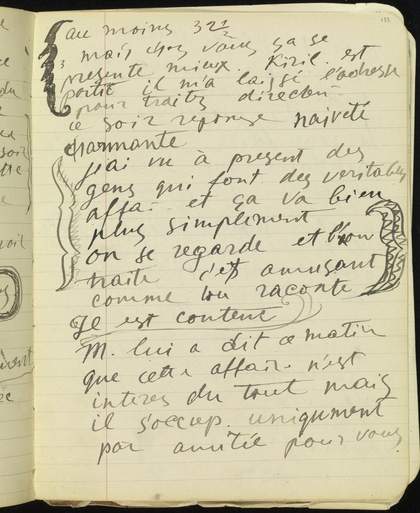 au moins 32
mais chez vous ça se
presente mieux. Kiril. est
partit il m'a laissé l'adresse
pour traiter directem
ce soir reponse naiveté
charmante
j'ai vu à present des
gens qui font des veritables
affai. et ça va bien
plus simplement
on se regarde et l'on
traite c'est amusant
comme tu raconte
Je est content
M. lui a dit ce matin
que cette affair. n'est
interes du tout mais
il s'occup. uniqument
par amitié pour vous